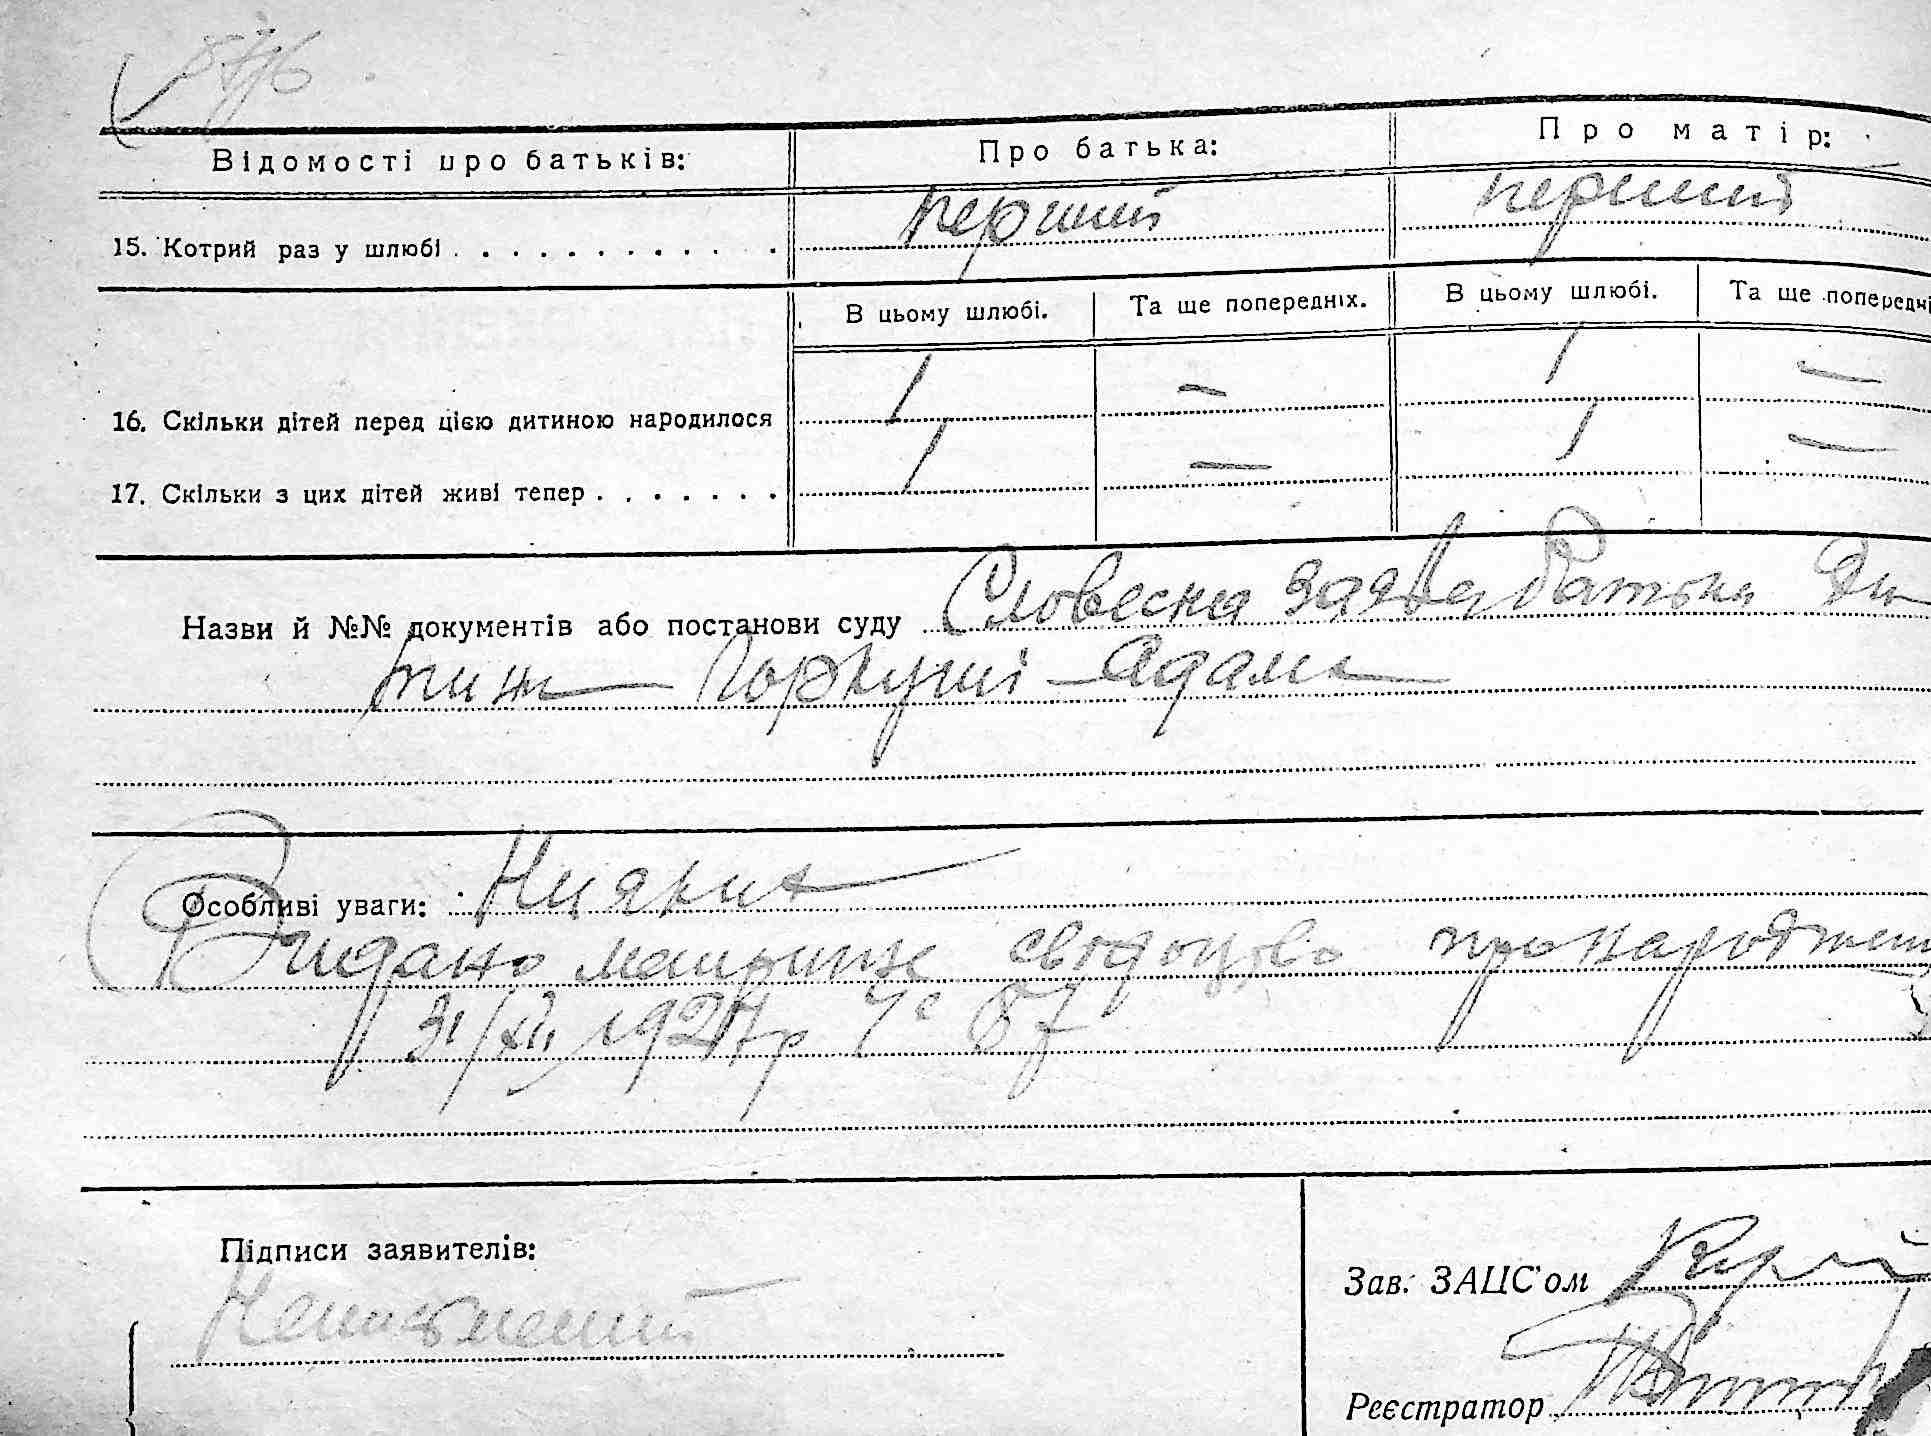 Відомості про батьків: Про батька: Про матір:
15. Котрий раз у шлюбі перший перший
В цьому шлюбі. Та ще попередніх. В цьому шлюбі. Та ще попередні
16. Скільки дітей перед цією дитиною народилося 1 — 1 —
17. Скільки з цих дітей живі тепер 1 — 1 —
Назви й №№ документів або постанови суду Словесна заява батька Ди
тини Горкуші Адама
Особливі уваги: Нияких
Видано свідоцтво про народжен
31/XII 1927р 87
Підписи заявителів:
Неписьменний
Зав. ЗАЦС'ом
Реєстратор